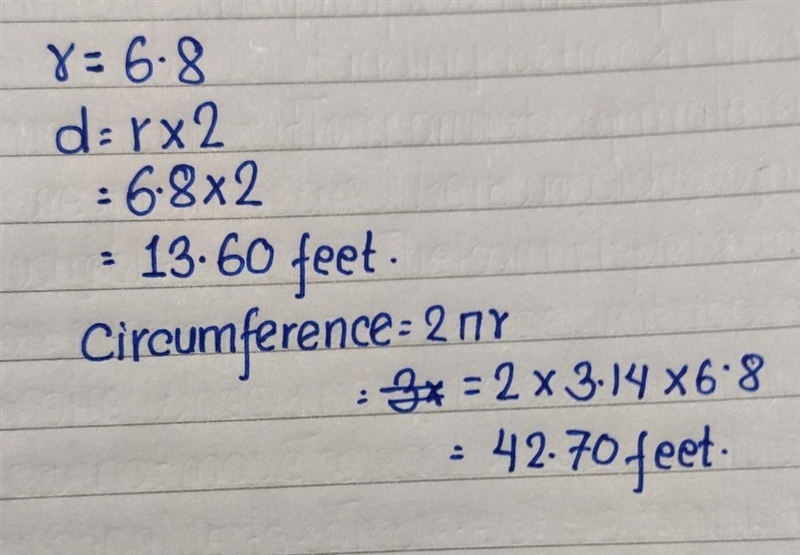 r = 6.8
d = r x 2
= 6.8 x 2
= 13.60 feet.
Circumference = 2πr
= = 2 x 3.14 x 6.8
= 42.70 feet.